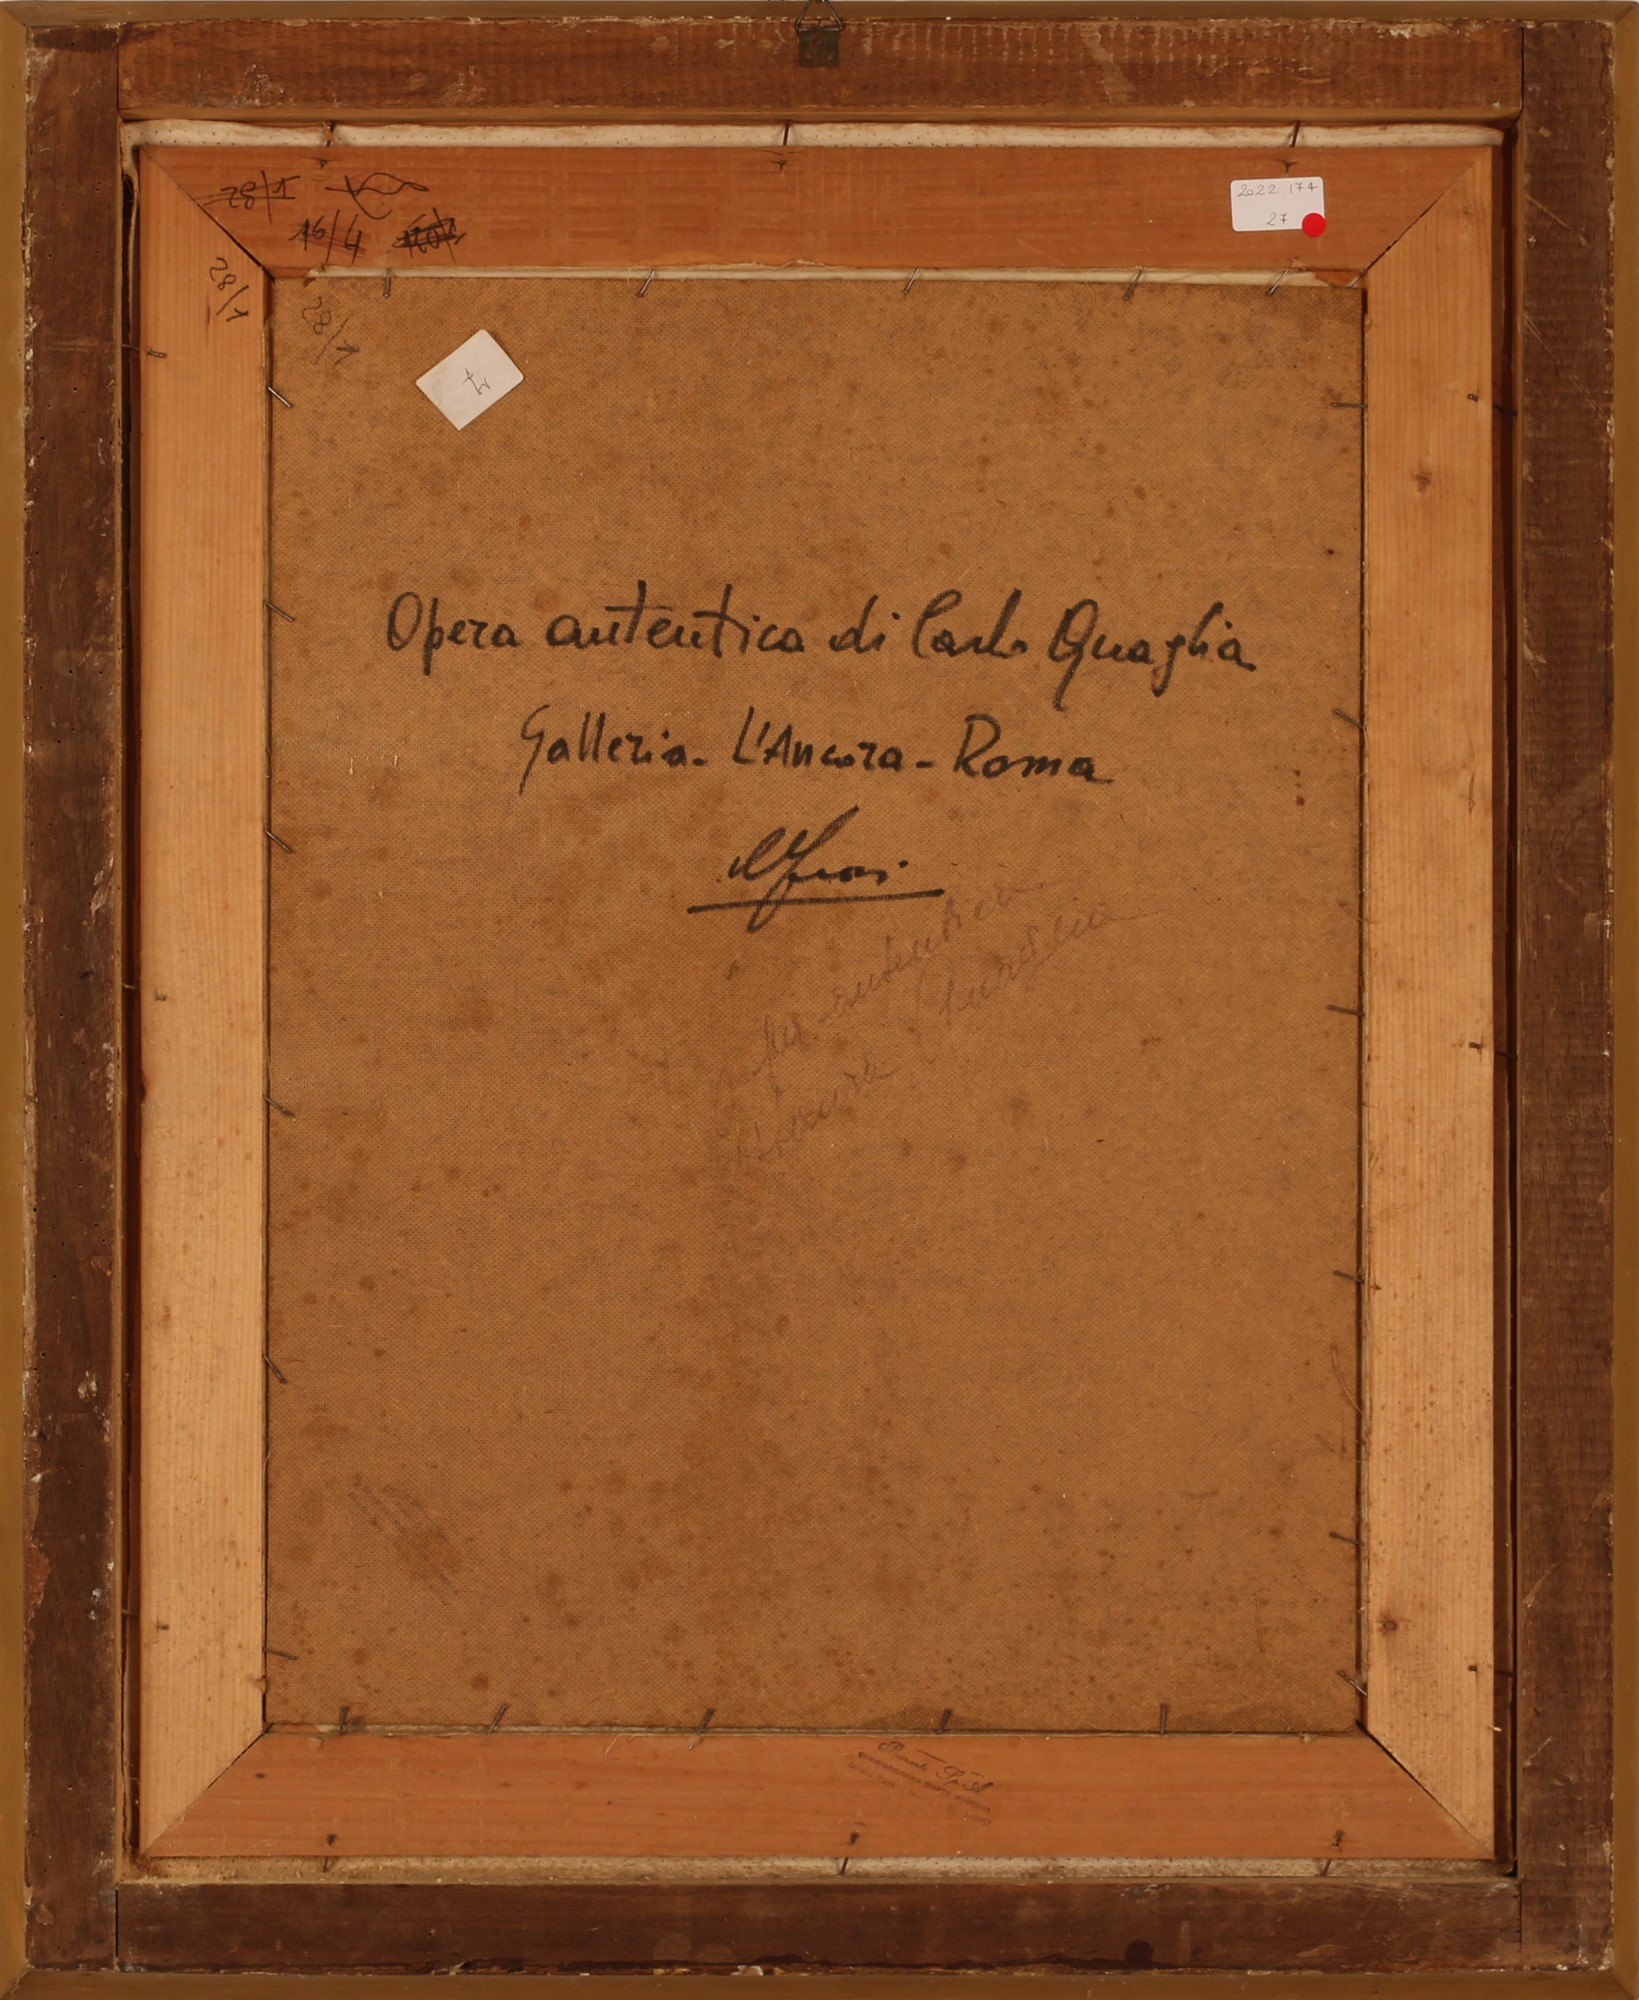 28/1
16/4
2022 174
27
28/1
28/1
Opera autentica di Carlo Quaglia
Galleria - L'Ancora - Roma
autentica
Quaglia